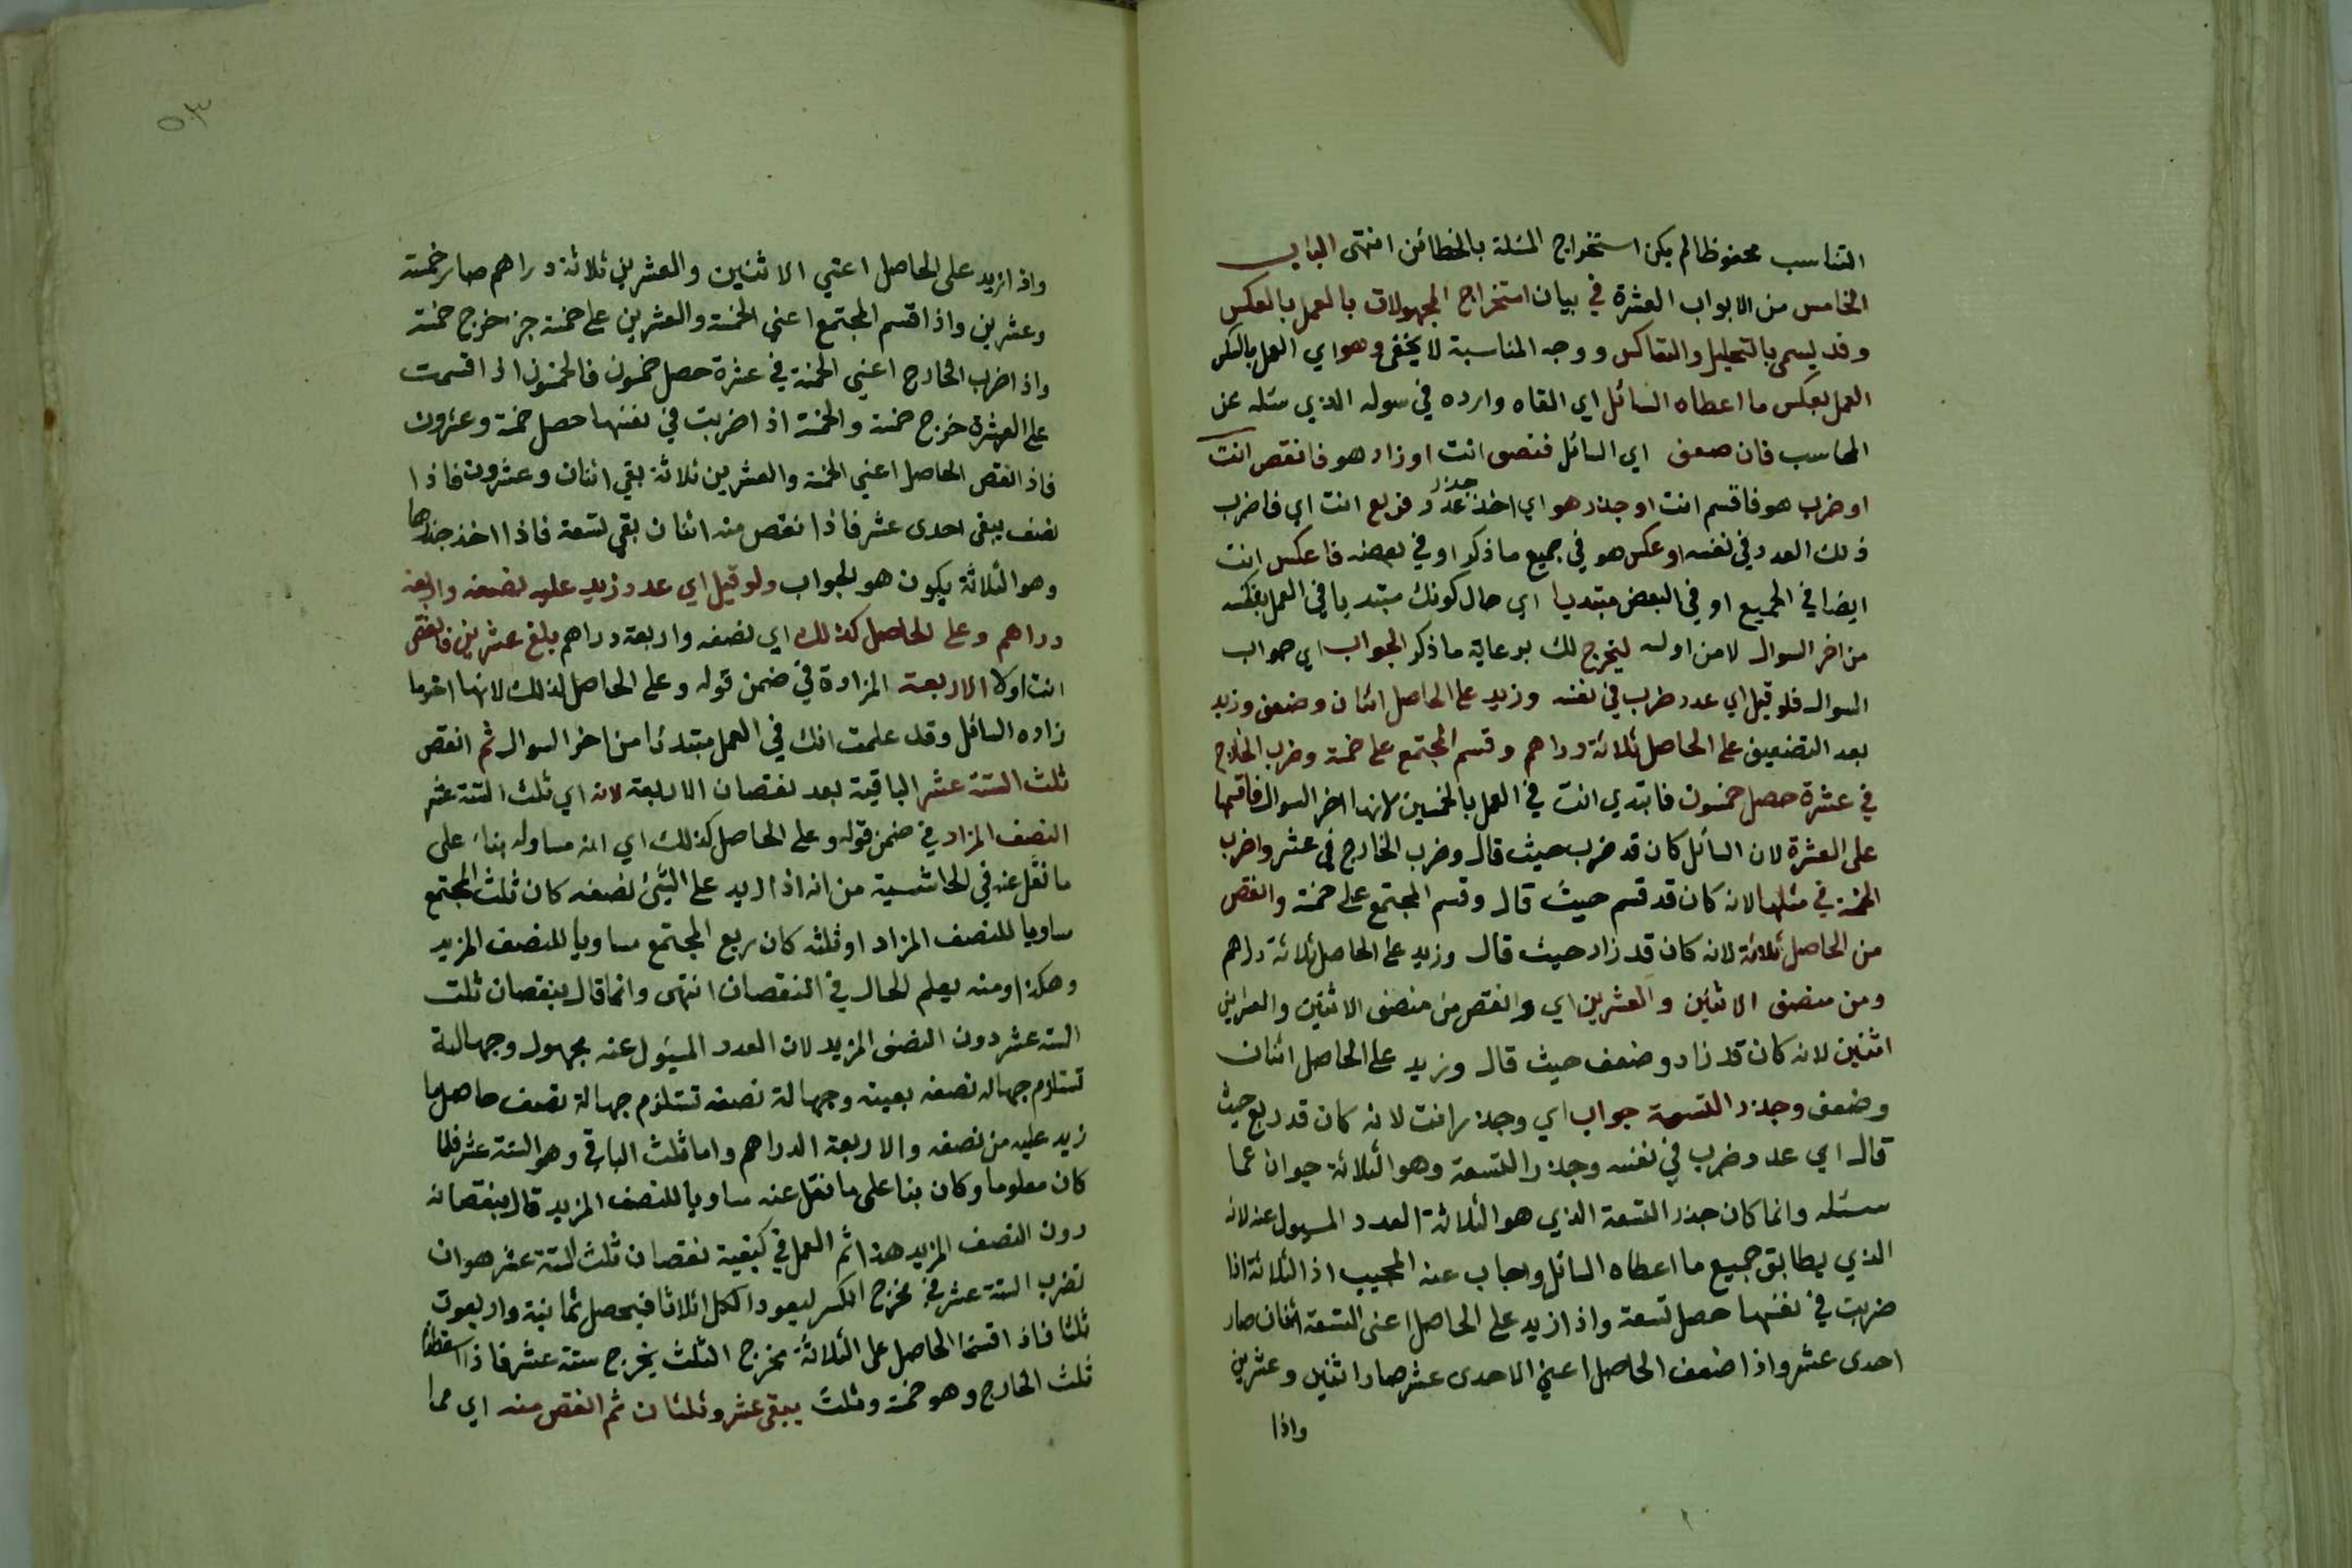 التناسب محفوظا لم يكن استخراج المسئلة بالخطائن انتهى الباب
الخامس من الابواب العشرة في بيان استخراج المجهولات بالعمل بالعكس
وقد يسمى بالتحليل والتعاكس ووجه المناسبة لا يخفى وهو اي العمل بالعكس
العمل بعكس ما اعطاه السائل اي القاه وارده في سوله الذي سئله عن
المحاسب فان ضعف اي السائل فنصف انت او زاد هو فانقص انت
او ضرب هو فاقسم انت او جذر هو اي اخذ جذر عدد فربع انت اي فاضرب
ذلك العدد في نفسه او عكس هو في جميع ما ذكر او في بعضه فاعكس انت
ايضا في الجميع او في البعض مبتديا اي حال كونك مبتديا في العمل بعكسه
من اخر السوال لا من اوله ليخرج لك برعاية ما ذكر الجواب اي جواب
السوال فلو قيل اي عدد ضرب في نفسه وزيد على الحاصل اثنان وضعف وزيد
بعد التضعيف على الحاصل ثلاثة دراهم وقسم المجتمع على خمسة وضرب الخارج
في عشرة حصل خمسون فابتدي انت في العمل بالخمسين لانها اخر السوال فاقسمها
على العشرة لان السائل كان قد ضرب حيث قال وضرب الخارج في عشر واضرب
الخمسة في مثلها لانه كان قد قسم حيث قال وقسم المجتمع على خمسة وانقص
من الحاصل ثلاثة لانه كان قد زاد حيث قال وزيد على الحاصل ثلاثة دراهم
ومن منصف الاثنين والعشرين اي وانقص من منصف الاثنين والعشرين
اثنين لانه كان قد زاد وضعف حيث قال وزيد على الحاصل اثنان
وضعف وجذر التسعة جواب اي وجذر انت لانه كان قد ربع حيث
قال اي عدد ضرب في نفسه وجذر التسعة وهو الثلاثة جوان عما
سئله وانما كان جذر التسعة الذي هو الثلاثة العدد المسول عنه لانه
الذي يطابق جميع ما اعطاه السائل واجاب عنه المجيب اذ الثلاثة اذا
ضربت في نفسها حصل تسعة واذا زيد على الحاصل اعنى التسعة اثنان صار
احدى عشر واذا ضعف الحاصل اعني الاحدى عشر صار اثنين وعشرين
واذا
٥٠٣
واذا زيد على الحاصل اعني الاثنين والعشرين ثلاثة دراهم صار خمسة
وعشرين واذا قسم المجتمع اعني الخمسة والعشرين على خمسة خرج خمسة
واذا ضرب الخارج اعني الخمسة في عشرة حصل خمسون فالخمسون اذا قسمت
على العشرة خرج خمسة والخمسة اذا ضربت في نفسها حصل خمسة وعشرون
فاذا نقص الحاصل اعني الخمسة والعشرين ثلاثة بقي اثنان وعشرون فاذا
نصف يبقى احدى عشر فاذا نقص منه اثنان بقي تسعة فاذا اخذ جذرها
وهو الثلاثة يكون هو الجواب ولو قيل اي عدد زيد عليه نصفه واربعة
دراهم وعلى الحاصل كذلك اي نصفه واربعة دراهم بلغ عشرين فانقص
انت اولا الاربعة المزادة في ضمن قوله وعلى الحاصل كذلك لانها اخر ما
زاده السائل وقد علمت انك في العمل مبتدئا من اخر السوال ثم انقص
ثلث الستة عشر الباقية بعد نقصان الاربعة لانه اي ثلث الستة عشر
النصف المزاد في ضمن قوله وعلى الحاصل كذلك اي انه مساو له بناء على
ما نقل عنه في الحاشية من انه اذا زيد على الشئ نصفه كان ثلث المجتمع
مساويا للنصف المزاد او ثلثه كان ربع المجتمع مساويا للنصف المزيد
وهكذا ومنه يعلم الحال في النقصان انتهى وانما قال بنقصان ثلث
الستة عشر دون النصف المزيد لان العدد المسئول عنه مجهول وجهالة
تستلزم جهالة نصفه بعينه وجهالة نصفه تستلزم جهالة نصف حاصل ما
زيد عليه من نصفه والاربعة الدراهم واما ثلث الباقي وهو الستة عشر فلما
كان معلوما وكان بنا على ما نقل عنه مساويا للنصف المزيد قال بنقصانه
دون النصف المزيد هذا ثم العمل في كيفية نقصان ثلث الستة عشر هو ان
تضرب الستة عشر في مخرج الكسر ليعود الكل اثلاثا فيحصل ثمانية واربعون
ثلثا فاذا قسمنا الحاصل على الثلاثة مخرج الثلث يخرج ستة عشر فاذا اسقطنا
ثلث الخارج وهو خمسة وثلث يبقى عشر وثلثان ثم انقص منه اي مما